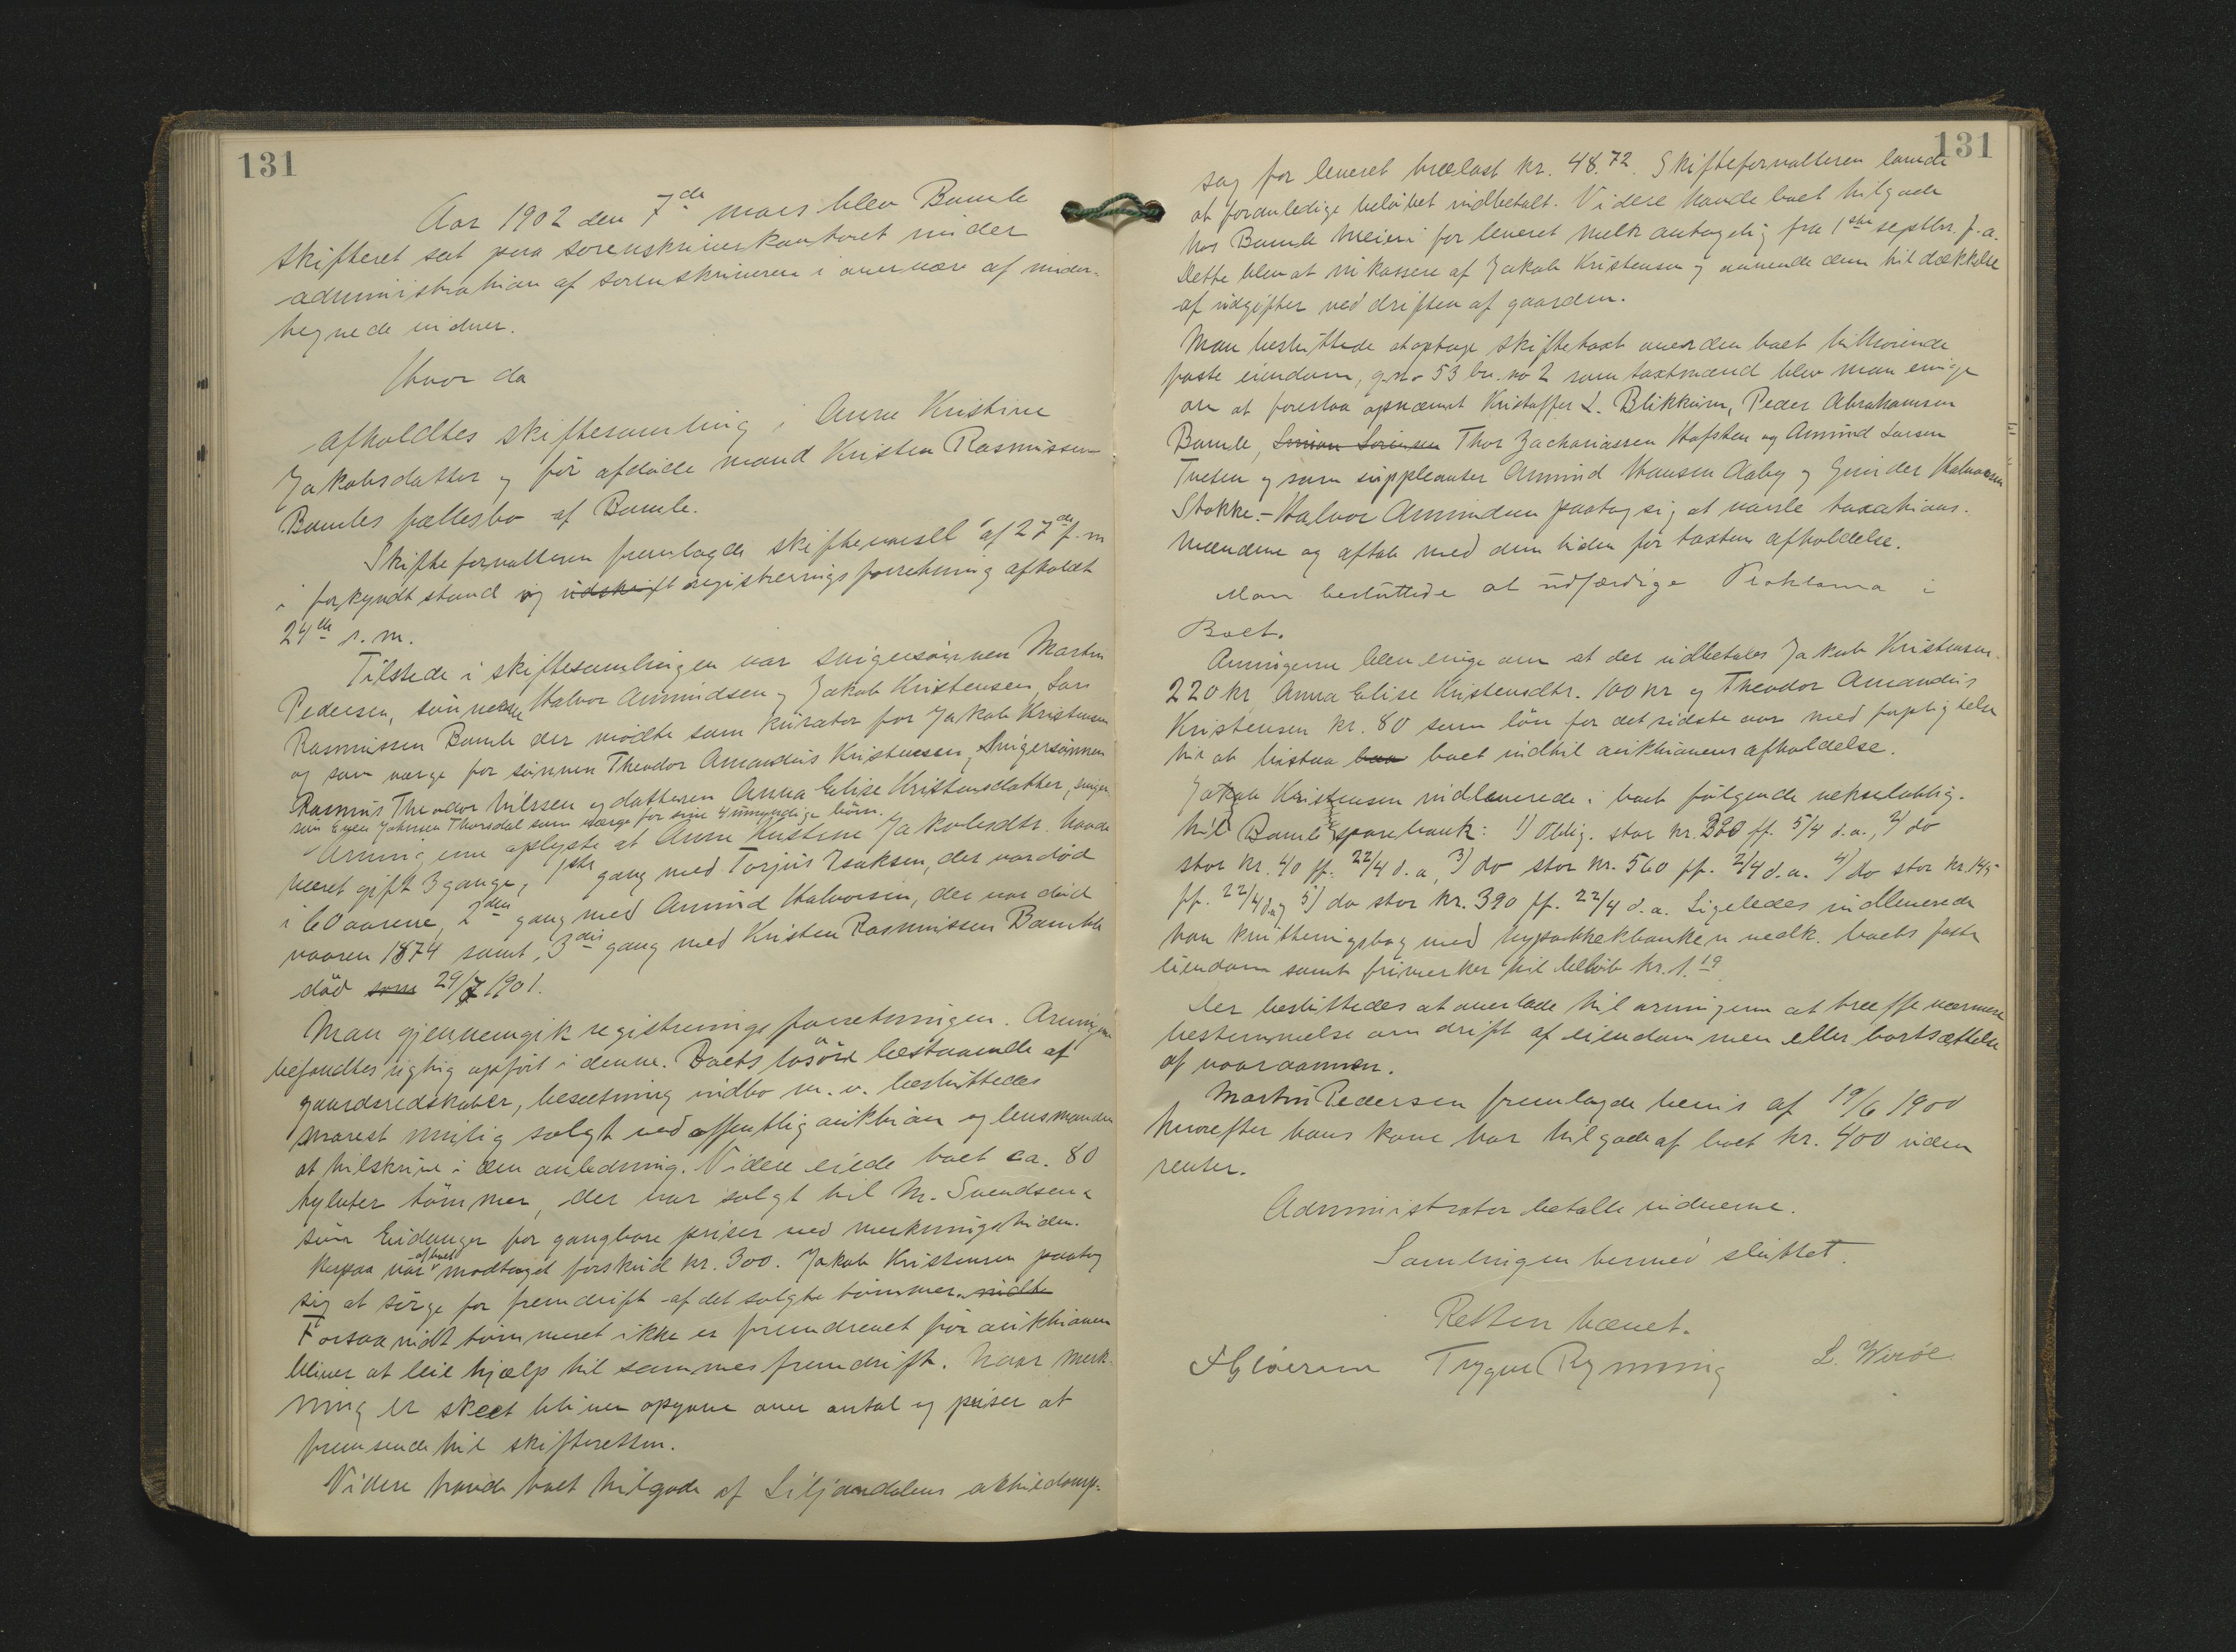 131
Aar 1902 den 7de mars blev Bamle
skifteret sat paa sorenskriverkontoret under
administration af sorenskriveren i overvær af under-
tegnede vidner.
Hvor da
afholdtes skiftesamling i Anne Kristine
Jakobsdatter og før afdøde mand Kristen Rasmussen
Bambles fællesbo af Bamle.
Skifteforvalteren fremlagde skiftevarsel af 27de f.m
i forkyndt stand og udskrift registreringsforretning afholdt
24de s.m.
Tilstede i skiftesamlingen var svigersønnen Martin
Pedersen, sønnerne Halvor Amundsen og Jakob Kristensen, Lars
Rasmussen Bamle der mødte som kurator for Jakob Kristensen
og som værge for sønnen Theodor Amandus Kristensen, Svigersønnen
Rasmus Theodor Nilssen og datteren Anna Elise Kristensdatter, sviger
søn Even Johnsen Thorsdal som værge for sine 4 umyndige børn.
Arvingerne oplyste at Anne Kristine Jakobsdtr. havde
været gift 3 gange, 1ste gang med Torjus Isaksen, der var død
i 60 aarene, 2den gang med Amund Halvorsen, der var død
vaaren 1874 samt, 3die gang med Kristen Rasmussen Bamble
død som 29/7 1901.
Man gjennemgik registreringsforretningen. Arvingerne
befandtes rigtig opført i denne. Boets løsøre bestaaende af
gaardsredskaber, besætning indbo m.v. besluttedes
snarest mulig solgt ved offentlig auktion og lensmanden
at tilskrive i den anledning. Videre eiede boet ca. 80
tylvter tømmer, der var solgt til M. Svendsen &
søn Eidanger for gangbare priser ved merkningstiden.
Herpaa var af boet modtaget forskud kr. 300. Jakob Kristensen paatog
sig at sørge for fremdrift af det solgte tømmer. 
Forsaavidt tømmeret ikke er fremdrevet før auktionen
bliver at leie hjælp til sammes fremdrift. Naar merk-
ning er skeet bliver opgave over antal og priser at
fremsende til skifteretten.
Videre havde boet tilgode af Liljendalens aktiedamp-
131
sag for leveret trælast kr. 48.72. Skifteforvalteren lovede
at foranledige beløbet indbetalt. Videre havde boet tilgode
hos Bamle Meieri for leveret melk antagelig fra 1ste septbr. f.a.
Dette blev at inkassere af Jakob Kristensen og anvende dem til dækkelse
af udgifter ved driften af gaarden.
Man besluttede at optage skiftetaxt over den boet tilhørende
faste eiendom, g.no 53 br. no 2 som taxtmænd blev man enige
om at foreslaa opnævnt Kristoffer L. Blikkum, Peder Abrahamsen
Bamle, Simon Sørensen Thor Zachariassen Hafsten og Amund Larsen
Tveten og som suppleanter Amund Hansen Aaby og Gunder Halvorsen
Stokke. - Halvor Amundsen paatog sig at varsle taxations-
mændene og aftale med dem tiden for taxtens afholdelse.
Man besluttede at udfærdige Proklama i
Boet.
Arvingerne blev enige om at der udbetales Jakob Kristensen
220 kr, Anna Elise Kristensdtr. 100 kr og Theodor Amandus
Kristensen kr. 80 som løn for det sidste aar med forpligtelse
til at bistaa boet indtil auktionens afholdelse.
Jakob Kristensen indleverede i boet følgende vekseloblig.
til Bamle sparebank: 1) Oblig. stor kr. 320 ff. 5/4 d.a., 2) do
stor kr. 40 ff. 22/4 d.a, 3) do stor kr. 560 ff. 2/4 d.a. 4) do stor kr. 145
ff. 22/4 d.a. 5) do stor kr. 390 ff. 22/4 d.a. Ligeledes indleverede
han kvitteringsbog med hypothekbanken vedk. boets faste
eiendom samt frimerker til beløb kr. 1.19
Der besluttedes at overlade til arvingerne at træffe nærmere
bestemmelse om drift af eiendommen eller bortsættelse
af vaaraannen.
Martin Pedersen fremlagde bevis af 19/6 1900
hvorefter hans kone har tilgode af boet kr. 400 uden
renter.
Administrator betalte vidnerne.
Samlingen hermed sluttet.
Retten hævet.
Trygve Rynning